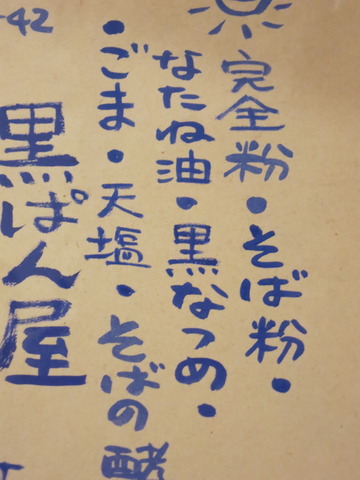 完全粉・そば粉・
なたね油・黒なつめ・
・ごま・天塩・そばの酵
黒ぱん屋
-42